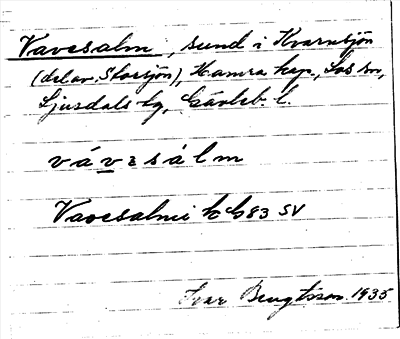 Vavesalm, sund i Kvarnsjön
(del av Storsjön), Hamra kap., Los sn,
Ljusdals tg, Gävleb. l.
vávesálm
Vavesalmi k G83 SV
Ivar Bengtsson 1935